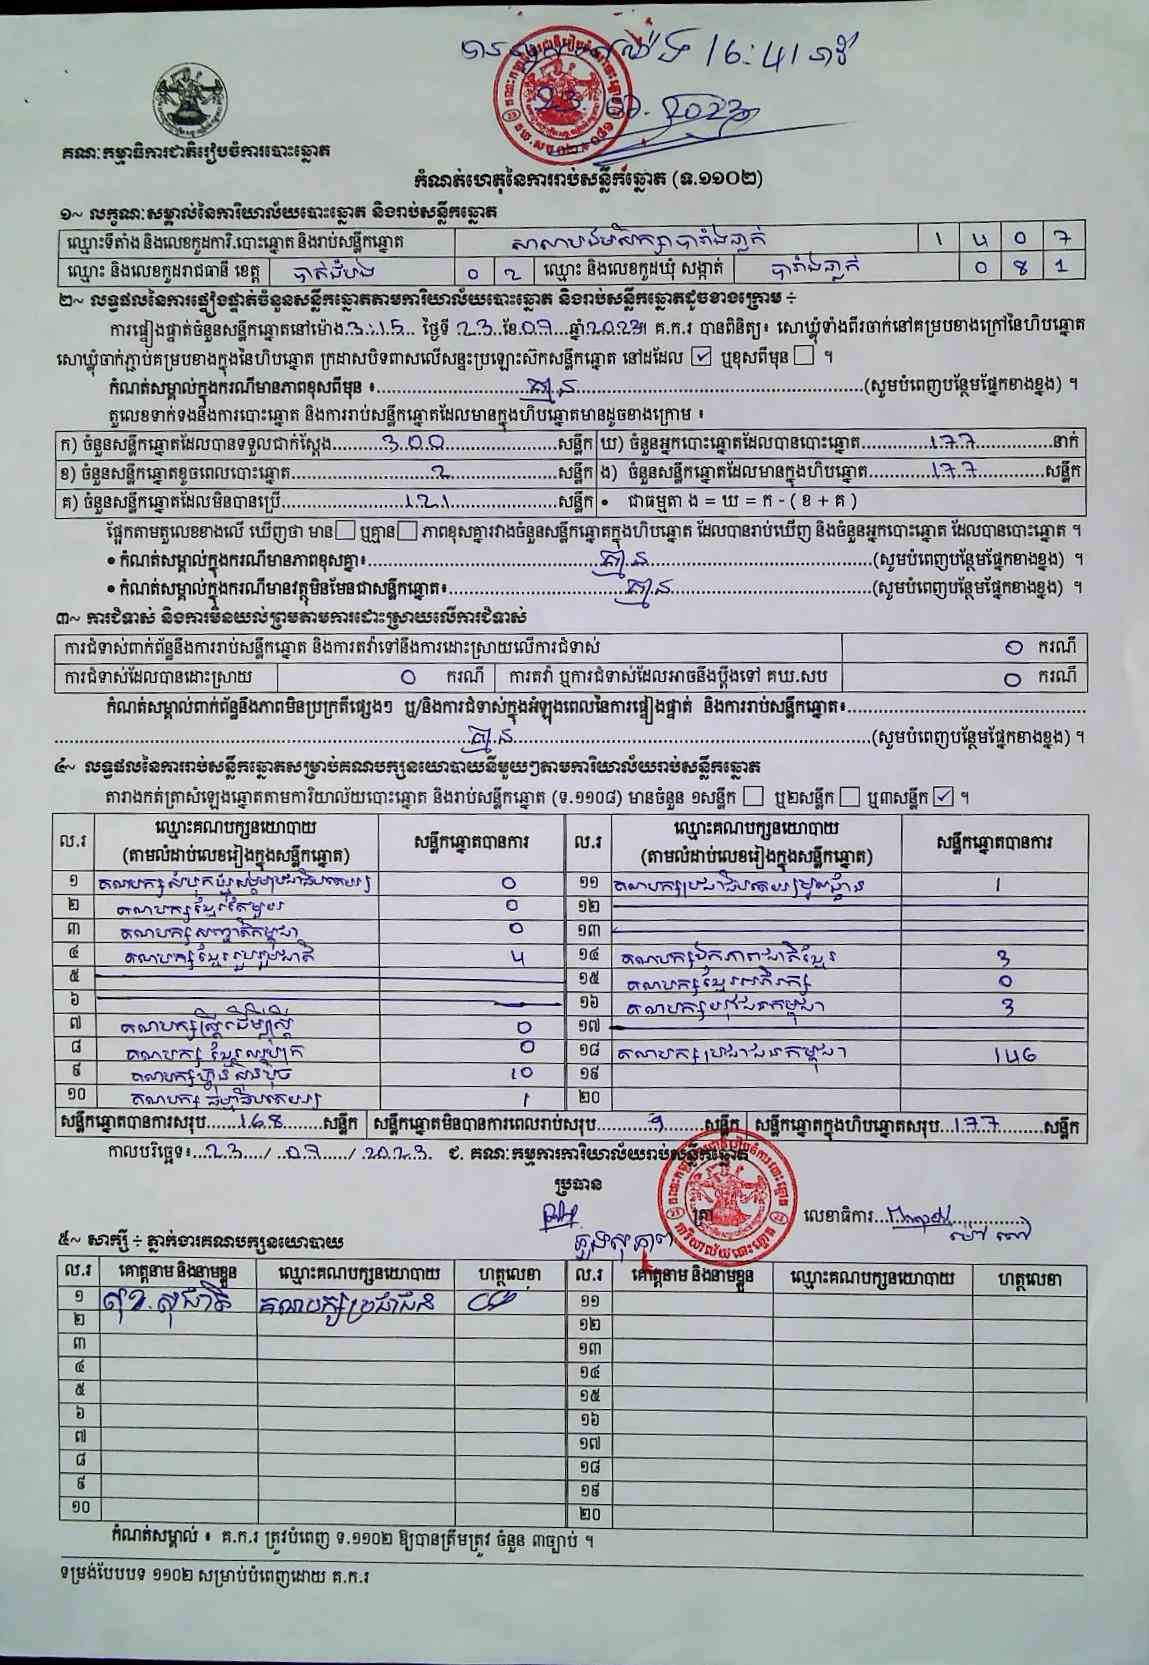 បានទទួលម៉ោង 16:41 នាទី
23 07 2023
គណៈកម្មាធិការជាតិរៀបចំការបោះឆ្នោត
កំណត់ហេតុនៃការរាប់សន្លឹកឆ្នោត (ទ.១១០២)
១~ លក្ខណៈសម្គាល់នៃការិយាល័យបោះឆ្នោត និងរាប់សន្លឹកឆ្នោត
ឈ្មោះទីតាំង និងលេខកូដការិ.បោះឆ្នោត និងរាប់សន្លឹកឆ្នោត សាលាបឋមសិក្សាបារាំងធ្លាក់ 1 4 0 7
ឈ្មោះ និងលេខកូដរាជធានី ខេត្ត បាត់ដំបង 0 2 ឈ្មោះ និងលេខកូដឃុំ សង្កាត់ បារាំងធ្លាក់ 0 8 1
២~ លទ្ធផលនៃការផ្ទៀងផ្ទាត់ចំនួនសន្លឹកឆ្នោតតាមការិយាល័យបោះឆ្នោត និងរាប់សន្លឹកឆ្នោតដូចខាងក្រោម ÷
ការផ្ទៀងផ្ទាត់ចំនួនសន្លឹកឆ្នោតនៅម៉ោង 3:15 ថ្ងៃទី 23 ខែ 07 ឆ្នាំ 2023 ។ គ.ក.រ បានពិនិត្យ៖ សោឃ្លុំទាំងពីរចាក់នៅគម្របខាងក្រៅនៃហិបឆ្នោត
សោឃ្លុំចាក់ភ្ជាប់គម្របខាងក្នុងនៃហិបឆ្នោត ក្រដាសបិទពាសលើសន្ទះប្រឡោះស៊កសន្លឹកឆ្នោត នៅដដែល ✓ ឬខុសពីមុន ។
កំណត់សម្គាល់ក្នុងករណីមានភាពខុសពីមុន ៖ គ្មាន (សូមបំពេញបន្ថែមផ្នែកខាងខ្នង) ។
តួលេខទាក់ទងនឹងការបោះឆ្នោត និងការរាប់សន្លឹកឆ្នោតដែលមានក្នុងហិបឆ្នោតមានដូចខាងក្រោម ៖
ក) ចំនួនសន្លឹកឆ្នោតដែលបានទទួលជាក់ស្ដែង 300 សន្លឹក ឃ) ចំនួនអ្នកបោះឆ្នោតដែលបានបោះឆ្នោត 177 នាក់
ខ) ចំនួនសន្លឹកឆ្នោតខូចពេលបោះឆ្នោត 2 សន្លឹក ង) ចំនួនសន្លឹកឆ្នោតដែលមានក្នុងហិបឆ្នោត 177 សន្លឹក
គ) ចំនួនសន្លឹកឆ្នោតដែលមិនបានប្រើ 121 សន្លឹក • ជាធម្មតា ង = ឃ = ក - ( ខ + គ )
ផ្អែកតាមតួលេខខាងលើ ឃើញថា មាន ឬគ្មាន ភាពខុសគ្នារវាងចំនួនសន្លឹកឆ្នោតក្នុងហិបឆ្នោត ដែលបានរាប់ឃើញ និងចំនួនអ្នកបោះឆ្នោត ដែលបានបោះឆ្នោត ។
• កំណត់សម្គាល់ក្នុងករណីមានភាពខុសគ្នា៖ គ្មាន (សូមបំពេញបន្ថែមផ្នែកខាងខ្នង) ។
• កំណត់សម្គាល់ក្នុងករណីមានវត្ថុមិនមែនជាសន្លឹកឆ្នោត៖ គ្មាន (សូមបំពេញបន្ថែមផ្នែកខាងខ្នង) ។
៣~ ការជំទាស់ និងការមិនយល់ព្រមតាមការដោះស្រាយលើការជំទាស់
ការជំទាស់ពាក់ព័ន្ធនឹងការរាប់សន្លឹកឆ្នោត និងការតវ៉ាទៅនឹងការដោះស្រាយលើការជំទាស់ 0 ករណី
ការជំទាស់ដែលបានដោះស្រាយ 0 ករណី ការតវ៉ា ឬការជំទាស់ដែលអាចនឹងប្ដឹងទៅ គឃ.សប 0 ករណី
កំណត់សម្គាល់ពាក់ព័ន្ធនឹងភាពមិនប្រក្រតីផ្សេងៗ ឬ/និងការជំទាស់ក្នុងអំឡុងពេលនៃការផ្ទៀងផ្ទាត់ និងការរាប់សន្លឹកឆ្នោត៖
គ្មាន (សូមបំពេញបន្ថែមផ្នែកខាងខ្នង) ។
៤~ លទ្ធផលនៃការរាប់សន្លឹកឆ្នោតសម្រាប់គណបក្សនយោបាយនីមួយៗតាមការិយាល័យរាប់សន្លឹកឆ្នោត
តារាងកត់ត្រាសំឡេងឆ្នោតតាមការិយាល័យបោះឆ្នោត និងរាប់សន្លឹកឆ្នោត (ទ.១១០៨) មានចំនួន ១សន្លឹក ឬ២សន្លឹក ឬ៣សន្លឹក ✓ ។
ល.រ ឈ្មោះគណបក្សនយោបាយ (តាមលំដាប់លេខរៀងក្នុងសន្លឹកឆ្នោត) សន្លឹកឆ្នោតបានការ ល.រ ឈ្មោះគណបក្សនយោបាយ (តាមលំដាប់លេខរៀងក្នុងសន្លឹកឆ្នោត) សន្លឹកឆ្នោតបានការ
១ គណបក្សសំបុកឃ្មុំសង្គមប្រជាធិបតេយ្យ 0 ១១ គណបក្សប្រជាធិបតេយ្យមូលដ្ឋាន 1
២ គណបក្សខ្មែរតែមួយ 0 ១២
៣ គណបក្សសញ្ជាតិកម្ពុជា 0 ១៣
៤ គណបក្សខ្មែររួបរួមជាតិ 4 ១៤ គណបក្សឯកភាពជាតិខ្មែរ 3
៥ ១៥ គណបក្សខ្មែរអភិរក្ស 0
៦ ១៦ គណបក្សយុវជនកម្ពុជា 3
៧ គណបក្សស្ត្រីដើម្បីស្ត្រី 0 ១៧
៨ គណបក្សខ្មែរឈប់ក្រ 0 ១៨ គណបក្សប្រជាជនកម្ពុជា 146
៩ គណបក្សហ្វ៊ុនស៊ិនប៉ិច 10 ១៩
១០ គណបក្សធម្មាធិបតេយ្យ 1 ២០
សន្លឹកឆ្នោតបានការសរុប 168 សន្លឹក សន្លឹកឆ្នោតមិនបានការពេលរាប់សរុប 9 សន្លឹក សន្លឹកឆ្នោតក្នុងហិបឆ្នោតសរុប 177 សន្លឹក
កាលបរិច្ឆេទ៖ 23 / 07 / 2023 ជ. គណៈកម្មការការិយាល័យរាប់សន្លឹកឆ្នោត
ប្រធាន
ត្រា លេខាធិការ
៥~ សាក្សី ÷ ភ្នាក់ងារគណបក្សនយោបាយ
ល.រ គោត្តនាម និងនាមខ្លួន ឈ្មោះគណបក្សនយោបាយ ហត្ថលេខា ល.រ គោត្តនាម និងនាមខ្លួន ឈ្មោះគណបក្សនយោបាយ ហត្ថលេខា
១ សុខ.សុជាតិ គណបក្សប្រជាជន ១១
២ ១២
៣ ១៣
៤ ១៤
៥ ១៥
៦ ១៦
៧ ១៧
៨ ១៨
៩ ១៩
១០ ២០
កំណត់សម្គាល់ ៖ គ.ក.រ ត្រូវបំពេញ ទ.១១០២ ឱ្យបានត្រឹមត្រូវ ចំនួន ៣ច្បាប់ ។
ទម្រង់បែបបទ ១១០២ សម្រាប់បំពេញដោយ គ.ក.រ